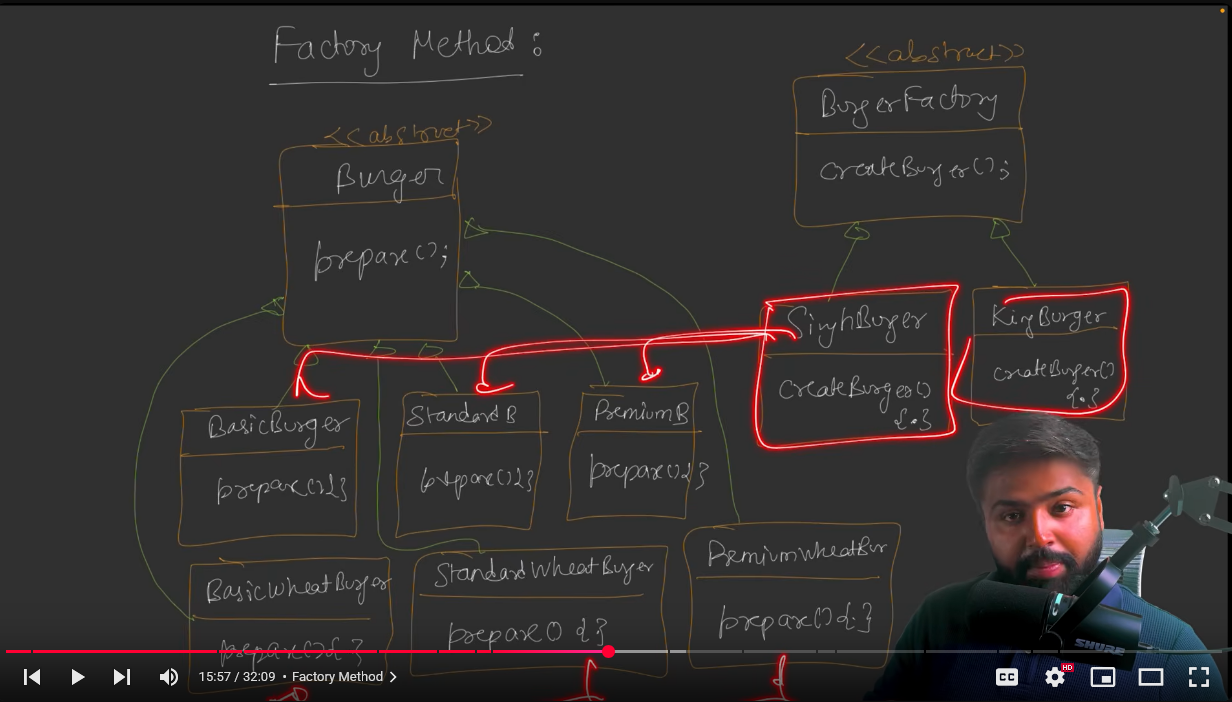 Factory Method :
<<abstract>>
BurgerFactory
createBurger();
<<abstract>>
Burger
prepare();
SinghBurger
createBurger()
{.}
KingBurger
createBurger()
{.}
BasicBurger
prepare(){}
StandardB
prepare(){}
PremiumB
prepare(){}
BasicWheatBurger
prepare(){}
StandardWheatBurger
prepare() {}
PremiumWheatBur
prepare(){.}
SHURE
15:57 / 32:09 • Factory Method
CC
HD